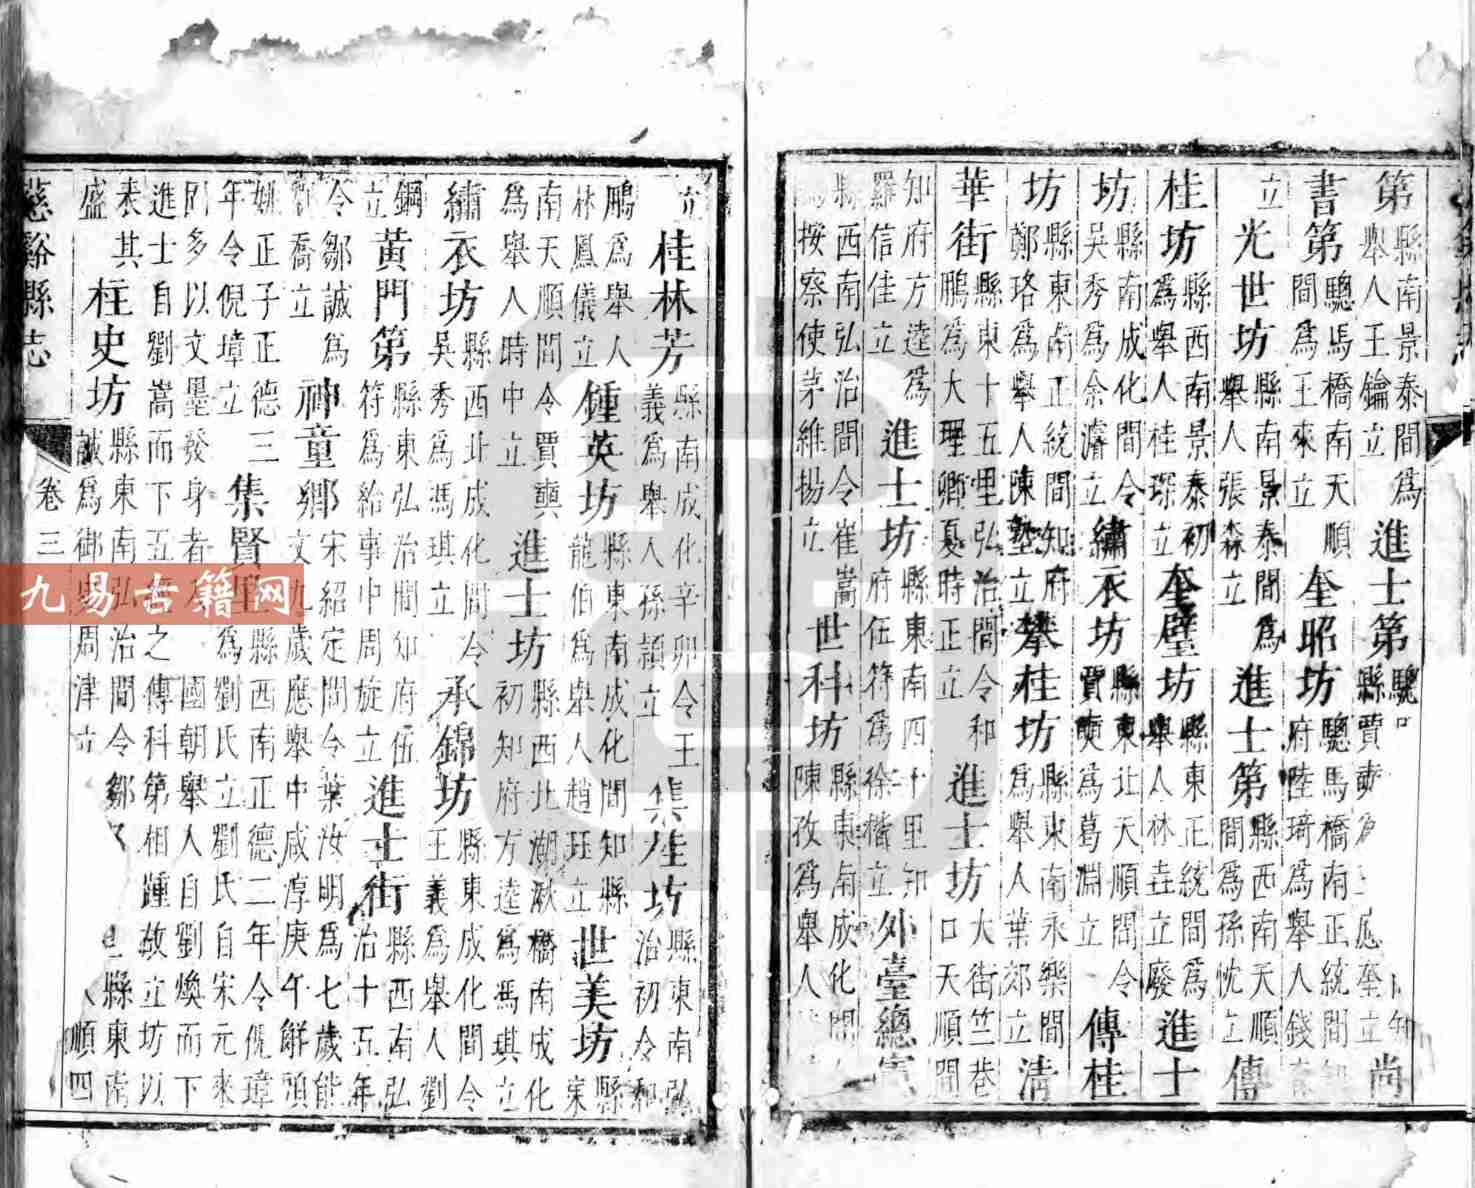 第縣南景泰間為舉人王鑰立進士第縣賈
書第驄馬橋南天順間為王來立奎昭坊驄馬橋南正統間府陸琦為舉人錢
立光世坊縣南景泰間為舉人張森立進士第縣西南天順間為孫忱立傳
桂坊縣西南景泰初為舉人桂琛立奎璧坊縣東正統間為舉人林垚立廢進士
坊縣南成化間令吳秀為余濬立繡衣坊縣東北天順間令賈奭為葛淵立傳桂
坊縣東南正統間知府鄭珞為舉人陳塾立攀桂坊縣東南永樂間為舉人葉郊立清
華街縣東十五里弘治間令和鵬為大理卿夏時正立進士坊大街竺巷口天順間
知府方逵為羅信佳立進士坊縣東南四十里知府伍符為徐楷立外臺總憲
縣西南弘治間令崔嵩為按察使茅維揚立世科坊縣東南成化間陳孜為舉人
立桂林芳縣南成化辛卯令王義為舉人孫頴立集桂坊縣東南弘治初令和
鵬為舉人林鳳儀立鍾英坊縣東南成化間知縣龍伯為舉人趙玨立世美坊縣東
南天順間令賈奭為舉人時中立進士坊縣西北湖漱橋南成化初知府方逵為馮琪立
繡衣坊縣西北成化間令吳秀為馮琪立承錦坊縣東成化間令王義為舉人劉
鋼立黃門第縣東弘治間知府伍符為給事中周旋立進士街縣西南弘治十五年
令鄒誠為喬立神童鄉宋紹定間令葉汝明為七歲能文九歲應舉中咸淳庚午解頭
姚正子正德三年令倪璋立集賢里縣西南正德二年令倪璋為劉氏立劉氏自宋元來
多以文墨發身者國朝舉人自劉煥而下
進士自劉嵩而下五之傳科第相踵故立坊以
表其盛柱史坊縣東南弘治間令鄒誠為御史周津立縣東南順四
慈谿縣志
卷三
九易古籍网